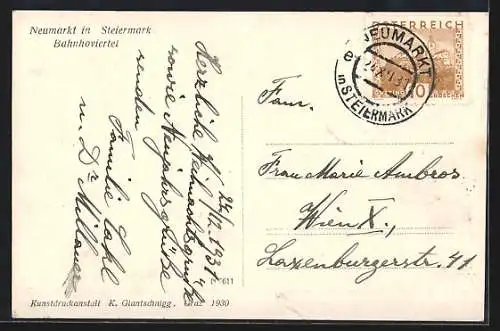 Neumarkt in Steiermark
Bahnhoviertel
24/12. 1931
Herzliche Weihnachtsgrüße
sowie Neujahrsgrüße
senden
Familie
u. Dr
611
Kunstdruckanstalt K. Glantschnigg, Graz 1930
ÖSTERREICH
10
NEUMARKT
in STEIERMARK
e
Fam.
Frau Marie Ambros
Wien X.,
Laxenburgerstr. 41